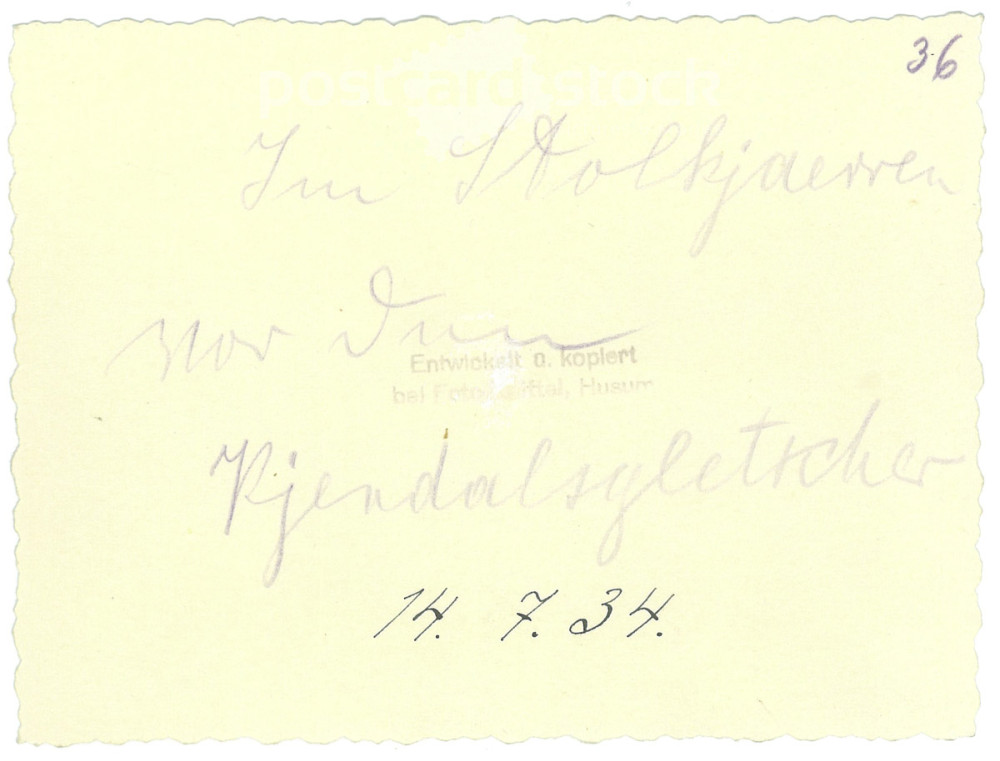 36
postcard stock
Im Stolkjaerren
vor dem
Entwickelt u. kopiert
bei Foto Husum
Kjendalsgletscher
14. 7. 34.